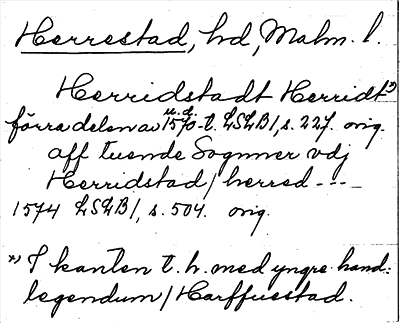 Herrestad, hd, Malm. l.
Herridstadt Herridt*)
u.d.
förra delen av 1570-t. LSLB1, s. 227. orig.
aff tuende Sognner vdj
Herridstad/herred ----
1574 LSLB1, s. 504. orig.
*) I kanten t. h. med yngre hand:
legendum/Harffuestad.